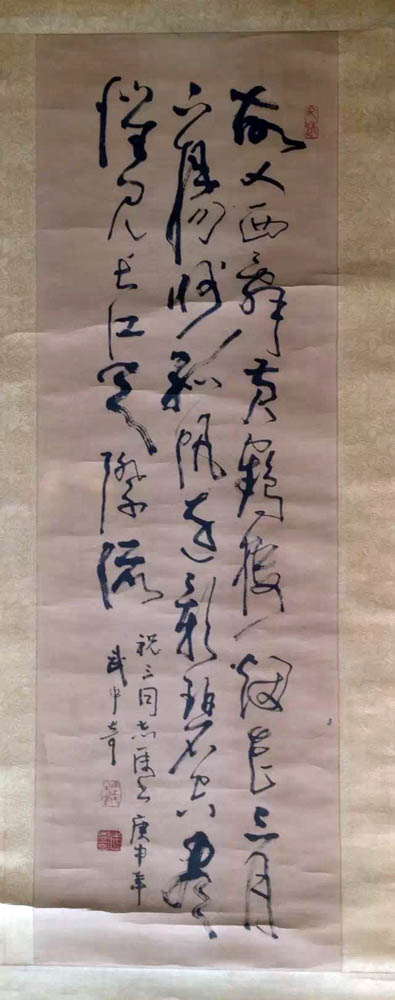 故人西辞黄鶴樓烟花三月
下揚州孤帆遠影碧空盡
惟見長江天際流
祝三同志属书 庚申年
武中奇